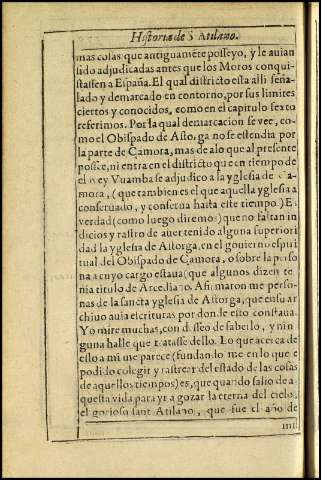 Historia de S. Atilano.
mas cosas que antiguamēte posseyo, y le auian
sido adjudicadas antes que los Moros conqui-
stassen a España. El qual districto esta alli seña-
lado y demarcado en contorno, por sus limites
ciertos y conocidos, como en el capitulo sexto
referimos. Por la qual demarcacion se vee, co-
mo el Obispado de Astorga no se estendia por
la parte de Çamora, mas de a lo que al presente
possee, ni entra en el districto que en tiempo de
el Rey Vuamba se adjudico a la yglesia de Ça-
mora, (que tambien es el que aquella yglesia a
conseruado, y conserua hasta este tiempo.) Es
verdad (como luego diremos) que no faltan in
dicios y rastro de auer tenido alguna superiori
dad la yglesia de Astorga, en el gouierno espiri
tual del Obispado de Çamora, o sobre la perso
na a cuyo cargo estaua (que algunos dizen te-
nia titulo de Arcediano. Afirmaron me perso-
nas de la sancta yglesia de Astorga, que en su ar
chiuo auia escrituras por donde esto constaua.
Yo mire muchas, con desseo de saberlo, y nin
guna halle que tratasse dello. Lo que acerca de
esto a mi me parece (fundando me en lo que e
podido colegir y rastrear del estado de las cosas
de aquellos tiempos) es, que quando salio de a-
questa vida para yr a gozar la eterna del cielo,
el glorioso sant Atilano, que fue el año de